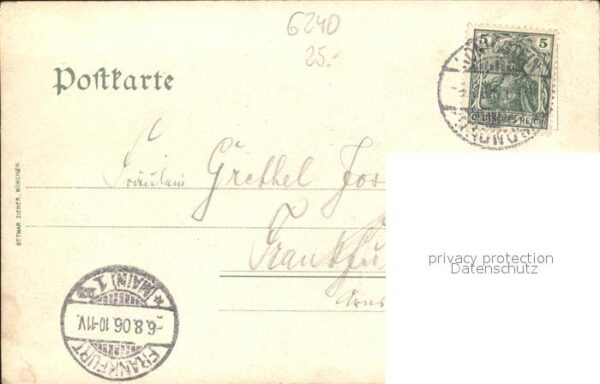 6240
25.-
Postkarte
5 5
DEUTSCHES REICH
Fräulein Grethel
Frankfu
OTTMAR ZIEHER, MÜNCHEN
privacy protection
Datenschutz
FRANKFURT
* (MAIN) 1 *
-6.8.06.10-11V.